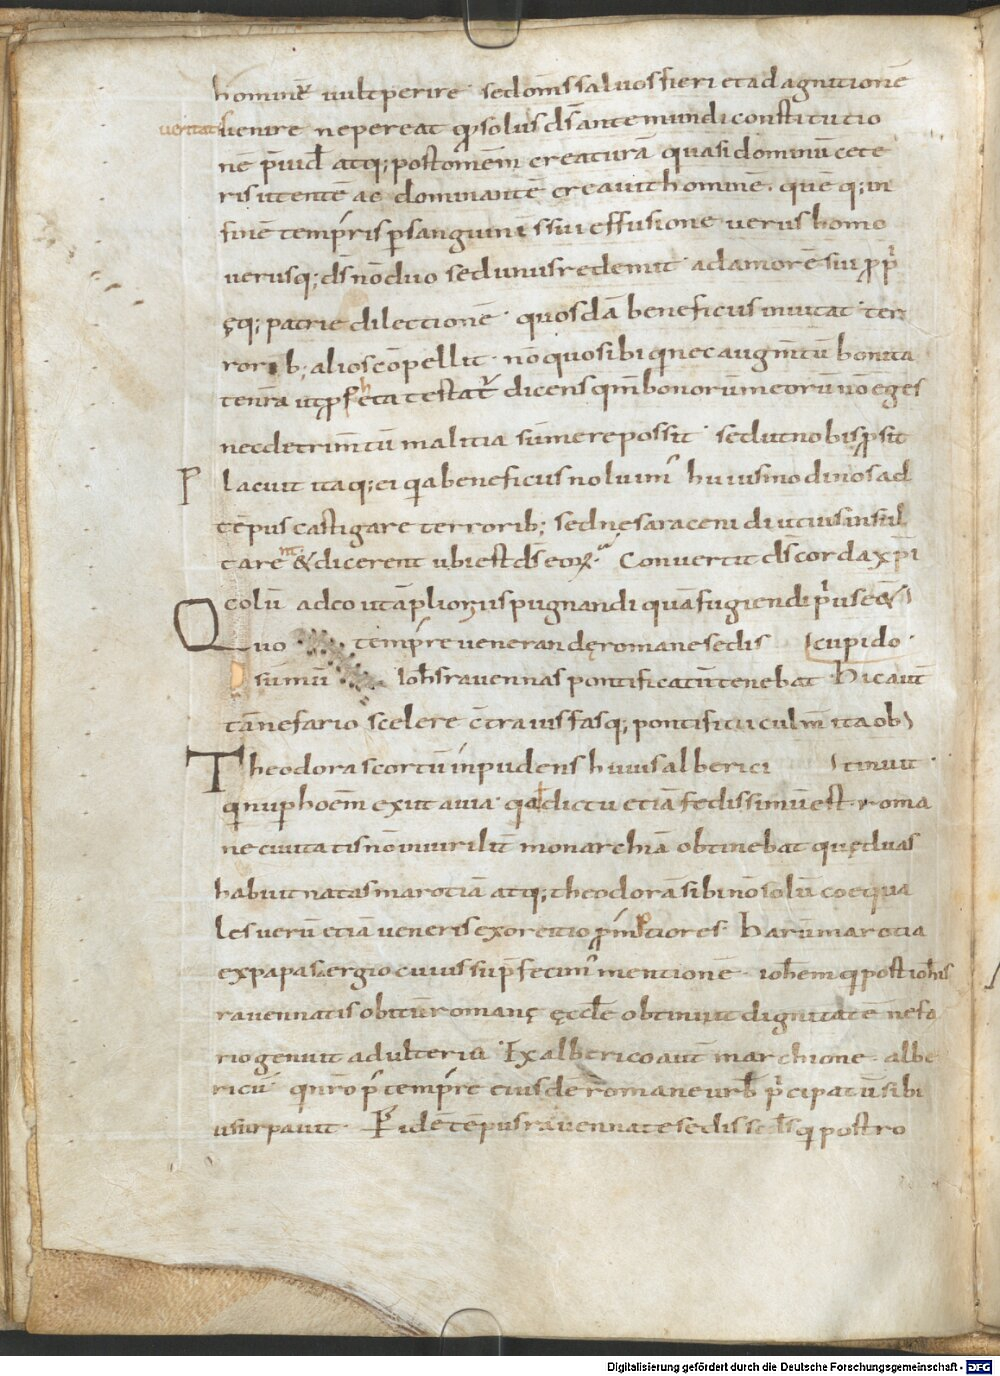 hominē vult perire sed om̄s saluos fieri et ad agnitionē
ueritatis uenire ne pereat qđ solus ds̄ ante mundi constitutio
nē p̄uid' atq; post om̄em creaturā quasi dominū cete
ris utentē ac dominantē creauit hominē. quē q; in
finē temporis p sanguinis sui effusione uerus homo
uerusq; ds̄ nō duo sed unus redemit ad amorē sui pp̄
ęq; patrie dilectionē quosdā beneficus inuitat ter
rorib; alios cōpellit nō quo sibi q nec augm̄tū bonita
te nr̄a ut ꝓpheta testat' dicens qm̄ bonorū meorū nō eges
nec detrim̄tū malitia sumere possit sed ut nobis ꝓsit
Placuit itaq; ei q̄a beneficus noluim' huiusmodi nos ad
tēpus castigare terrorib; sed nę saraceni diutius insul
tarent & dicerent ubi est ds̄ eoꝝ. Conuertit ds̄ corda xp̄i
colū adeo ut āplior eis pugnandi quā fugiendi p̄us e&
Quo tempr̄e uenerandę romane sedis cupido
sūmū Ioh̄s rauennas pontificatū tenebat Hic aut̄
tā nefario scelere c̄tra ius fasq; pontificii culm̄ ita ob
Theodora scortū inpudens huius alberici tinuit
q nup hoēm exiit auia q̄d dictu etiā fedissimū est. roma
ne ciuitatis nō inuirilit̄ monarchiā obtinebat quę duas
habuit natas marotiā atq; theodorā sibi nō solū coequa
les uerū etiā ueneris exercitio promptiores. Harū marotia
ex papa sergio cuius sup̄ fecim' mentionē. ioh̄em q post ioh̄is
rauennatis obitū romanę ęccl̄e obtinuit dignitatē nefa
rio genuit adulterio Ex alberico aut̄ marchione albe
ricū qi nr̄o p̄ tempr̄e eiusdē romane urb̄ p̄cipatū sibi
usurpauit. P idē tēpus rauennate sedis q post ro